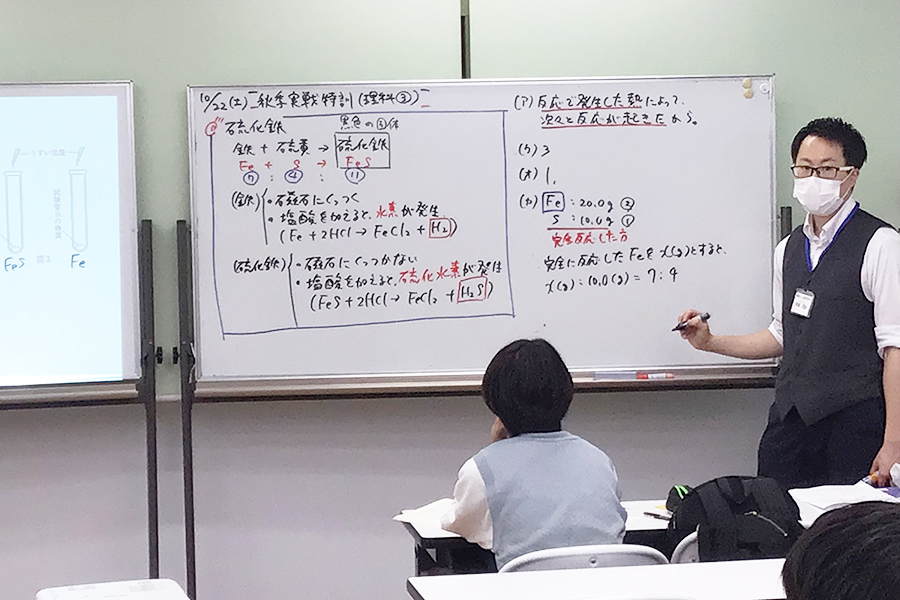 うすい塩酸
試験管Bの物質
図2
FeS
Fe
10/22(土)『秋季実戦特訓(理科③)』
硫化鉄
黒色の固体
鉄 + 硫黄 → 硫化鉄
Fe + S → FeS
7 : 4 : 11
(鉄)
・磁石にくっつく
・塩酸を加えると、水素が発生
(Fe + 2HCl → FeCl2 + H2)
(硫化鉄)
・磁石にくっつかない
・塩酸を加えると、硫化水素が発生
(FeS + 2HCl → FeCl2 + H2S)
(ア) 反応で発生した熱によって、
次々と反応が起きたから。
(ウ) 3
(オ) 1,
(カ) Fe : 20.0g ②
S : 10.0g ①
完全反応した方
完全に反応したFeをx(g)とすると、
x(g) : 10.0(g) = 7 : 4